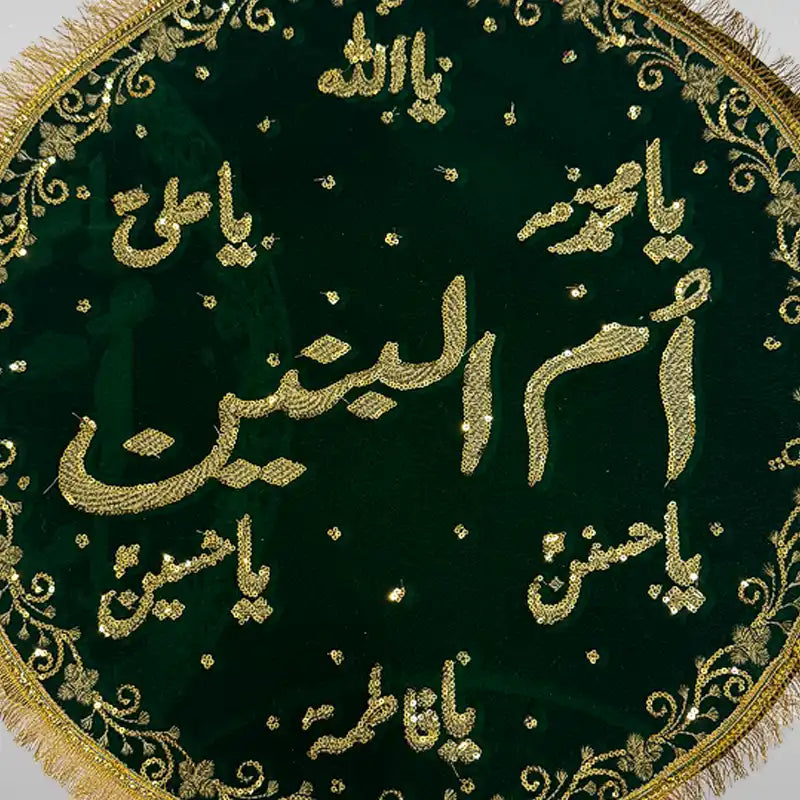 یا الله
یا محمد
یا علی
اُم البنین
یا حسن
یا حسین
یا فاطمة